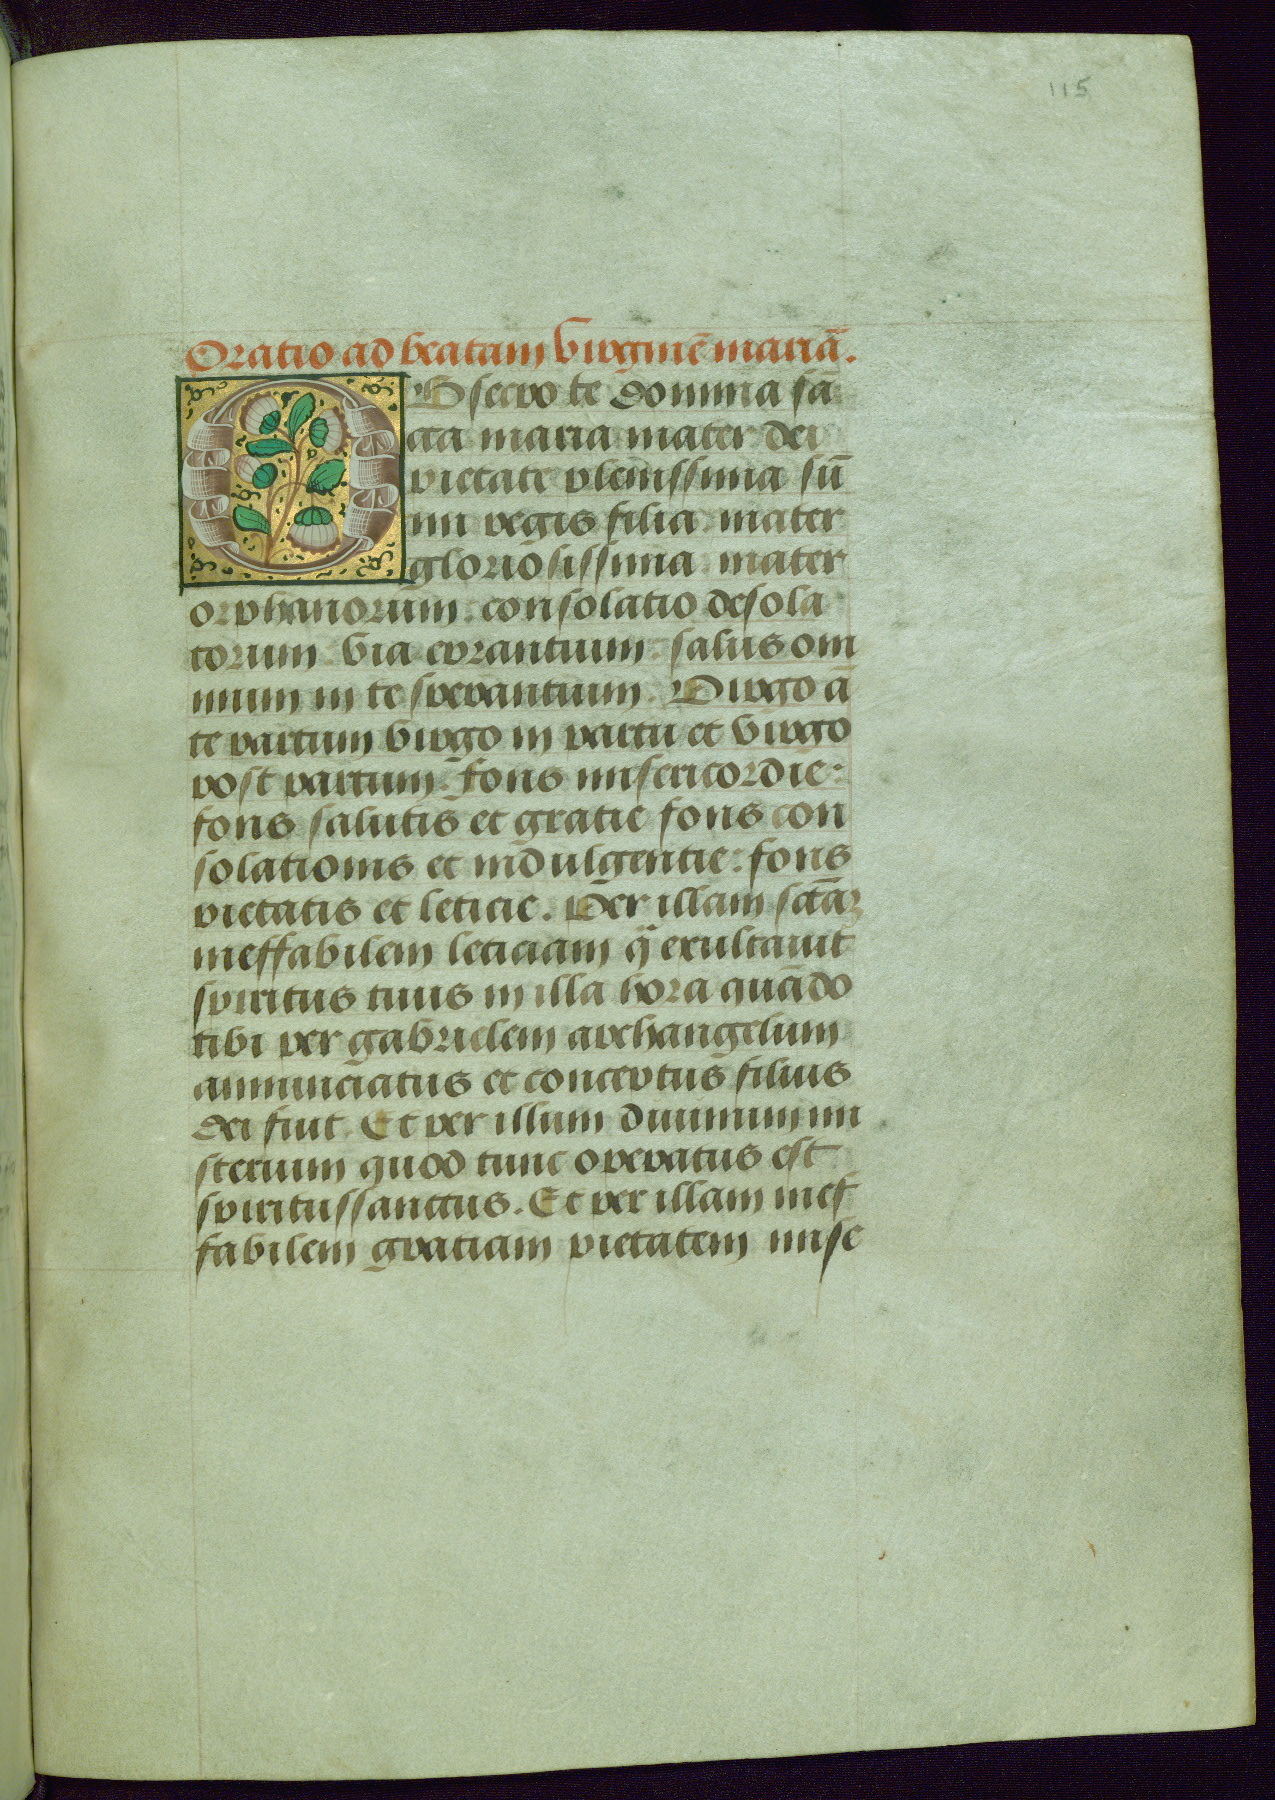 115
Oratio ad beatam virginē mariā.
OBsecro te domina sā
cta maria mater dei
pietate plenissima sū
mi regis filia mater
gloriosissima mater
orphanorum: consolatio desola
torum via errantium: salus om
nium in te sperantium. Virgo ā
te partum virgo in partu et virgo
post partum. fons misericordie:
fons salutis et gratie fons con
solationis et indulgentie: fons
pietatis et leticie. Per illam sctāꝫ
ineffabilem leticiam q̄ exultauit
spiritus tuus in illa hora quādo
tibi per gabrielem archangelum
annunciatus et conceptus filius
dei fuit. Et per illum diuinum mi
sterium quod tunc operatus est
spiritussanctus. Et per illam inef
fabilem gratiam pietatem mise